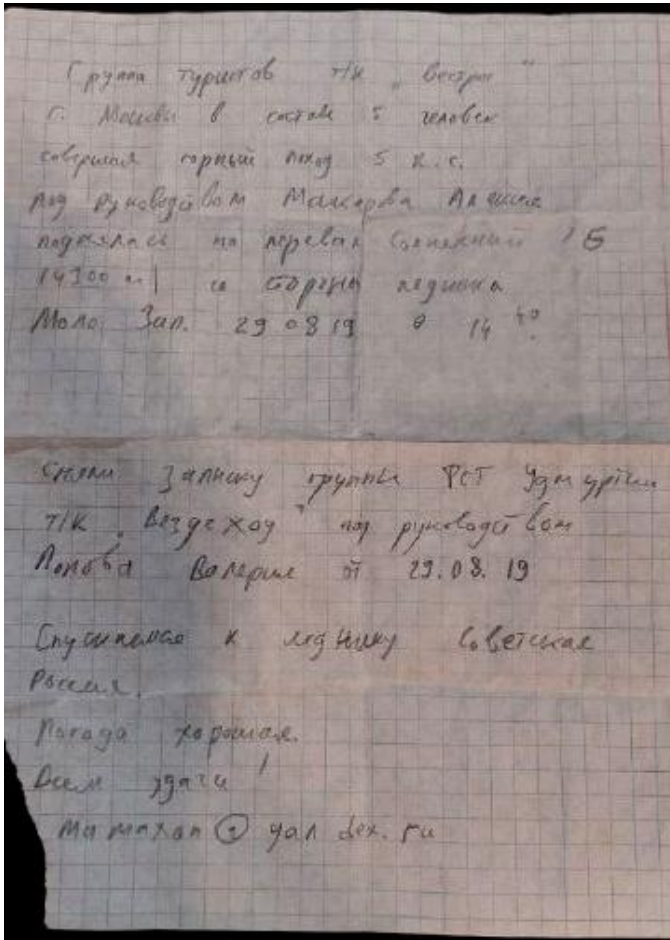 Группа туристов т/к „Вестра"
г. Москвы в составе 5 человек
совершая горный поход 5 к.с.
под руководством Макарова Алексея
поднялась на перевал 1Б
(4300 м) со стороны ледника
Мало Зап. 29 08 19 в 14 40.
Сняли записку группы ФСТ Удмуртии
т/к „Вездеход" под руководством
Попова Валерия от 29.08.19
Спускаемся к леднику Советская
Россия.
Погода хорошая.
Всем удачи!